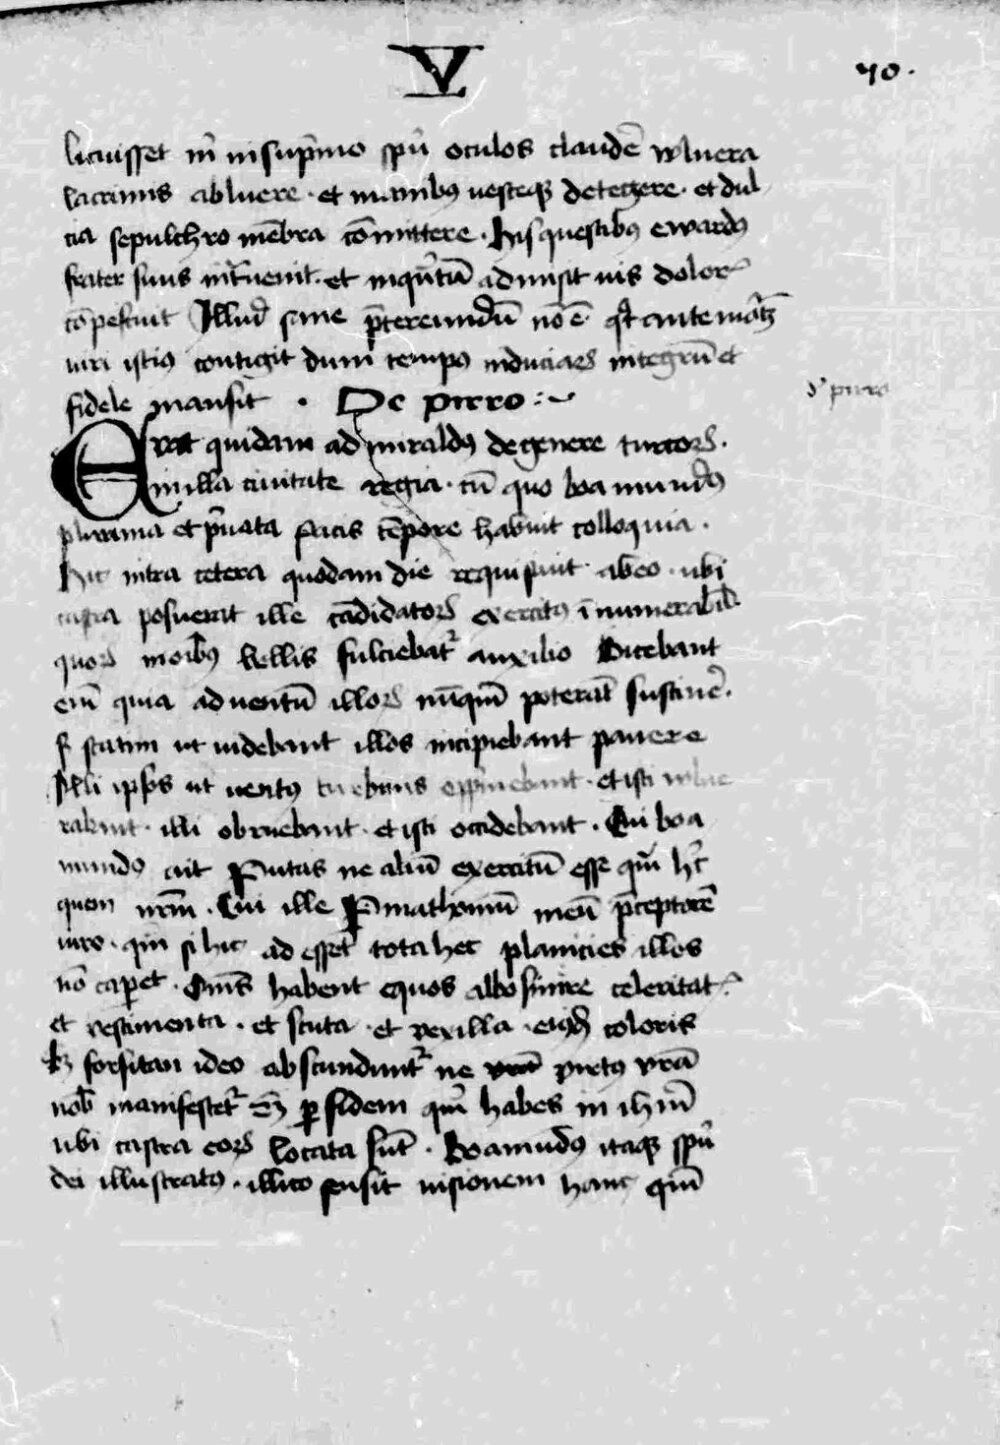 V
70.
licuisset m̄ in sup̄mo spū oculos claudē wlnera
lacrimis abluere · et manibꝫ uesteqꝫ detegere · et dul
cia sepulchro mēbra cōmittere · Hijs questibꝫ ewardꝰ
frater suus int̄uenit · et inqͣntū admisit uis dolorꝭ
cōpescuit Illud̄ sane p̄tereundū nō ē qd̄ ante mortē
uiri istiꝰ contigit dum tempꝰ induciaꝝ integrū et
fidele mansit · De pirro
d' pirro
Erat quidam admiraldꝰ degenere turcoꝝ ·
in illa ciuitate regia · cū quo boamundꝰ
plurima et p̄uata pacis tēpore habuit colloquia ·
Hic intra cetera quodam die requisiuit abeo · ubi
castra posuerit ille cādidatoꝝ exercitꝰ īnumerabil̄
quoꝝ in oībꝰ bellis fulciebatͬ auxilio Dicebant
enī quia aduentū illoꝝ nūqͣm poterāt sustinē ·
s̄ statim ut uidebant illos incipiebant pauere
Illi ipsos ut uentꝰ turbinis opp̄mebant · et isti wlne
rabant · illi obruebant · et isti occidebant · Cui boa
mundꝰ ait Putas ne aliū exercitū esse qͣm hūc
quem nr̄m · Cui ille P mathomū meū p̄ceptorē
iuro · qm̄ si hic ad essēt tota hec planicies illos
nō caperet · Om̄s habent equos albos mire celeritatꝭ
et vestimenta · et scuta · et vexilla · eiꝰd̄ coloris
Sꝫ forsitan ideo abscunduntͬ ne uirtus vrā
nob̄ manifestetͬ Sꝫ ꝑ fidem quā habes in ih̄m
ubi castra eoꝝ locata sūt · Boamūdꝰ itaqꝫ spū
dei illustratꝰ · illico sensit uisionem hanc qm̄